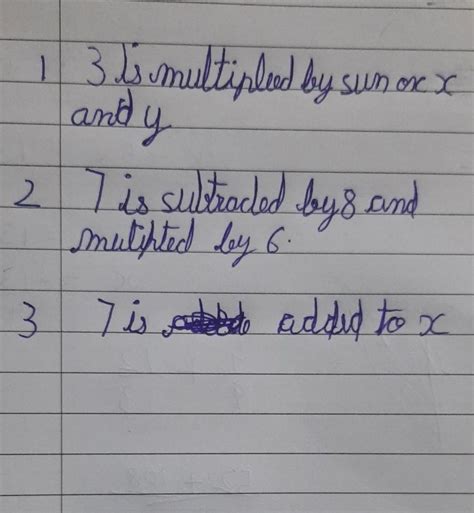 1 3 is multiplied by sun or x
and y
2 7 is subtracted by 8 and
mutiplted by 6.
3 7 is added to x